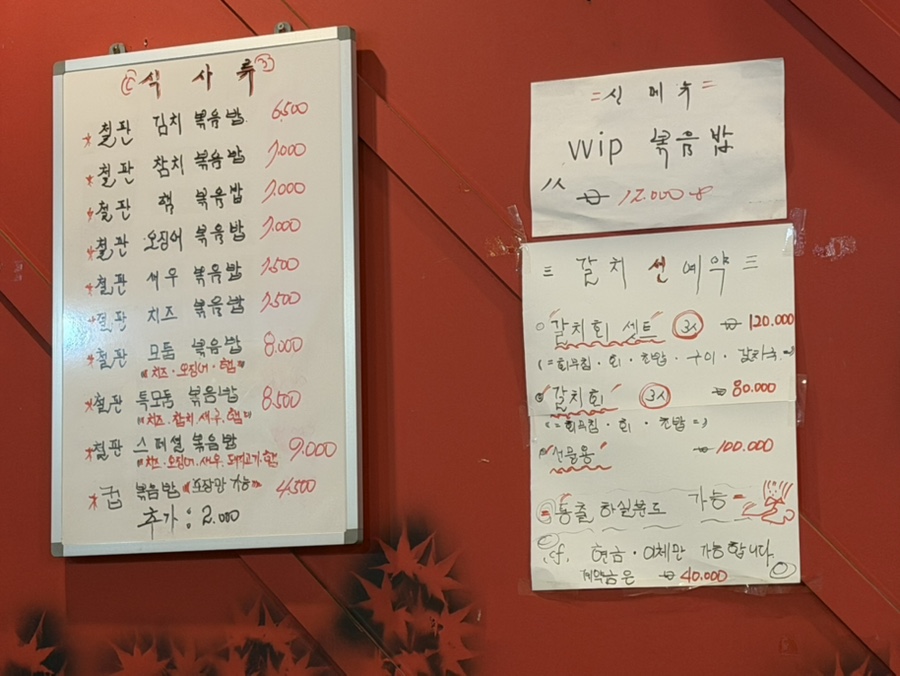 식 사 류
* 철판 김치 볶음밥 6,500
* 철판 참치 볶음밥 7,000
* 철판 햄 볶음밥 7,000
* 철판 오징어 볶음밥 7,000
* 철판 새우 볶음밥 7,500
* 철판 치즈 볶음밥 7,500
* 철판 모둠 볶음밥 8,000
"치즈·오징어·햄"
* 철판 특모둠 볶음밥 8,500
"치즈·참치·새우·햄"
* 철판 스페셜 볶음밥 9,000
"치즈·오징어·새우·돼지고기·햄"
* 컵 볶음밥 "포장만 가능" 4,500
추가 : 2,000
= 신 메뉴 =
vvip 볶음밥
12,000
≡ 갈치 선 예약 ≡
갈치회 세트 3人 120,000
(=회무침·회·초밥·구이·
갈치회 3人 80,000
(=회무침·회·초밥=)
선물용 100,000
하실분도 가능
cf. 현금·이체만 가능합니다.
계약금은 40,000